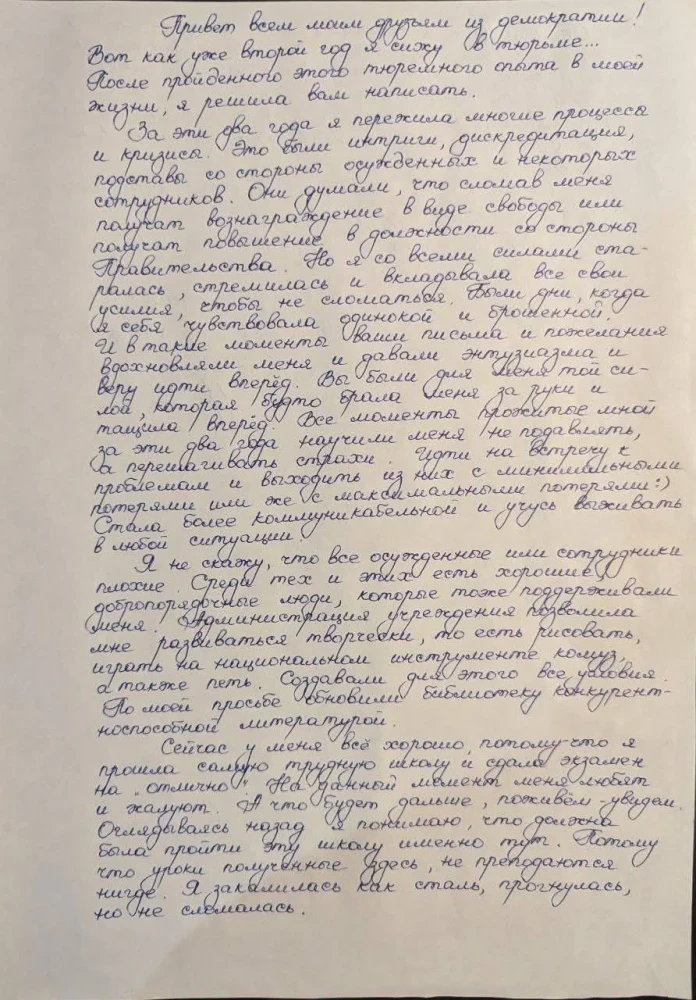 Привет всем моим друзьям из демократии!
Вот как уже второй год я сижу в тюрьме...
После пройденного этого тюремного опыта в моей
жизни, я решила вам написать.
За эти два года я пережила многие процессы
и кризисы. Это были интриги, дискредитация,
подставы со стороны осужденных и некоторых
сотрудников. Они думали, что сломав меня
получат вознаграждение в виде свободы или
получат повышение в должности со стороны
Правительства. Но я со всеми силами ста-
ралась, стремилась и вкладывала все свои
усилия, чтобы не сломаться. Были дни, когда
я себя чувствовала одинокой и брошенной.
И в такие моменты ваши письма и пожелания
вдохновляли меня и давали энтузиазма и
веру идти вперёд. Вы были для меня той си-
лой, которая будто брала меня за руки и
тащила вперёд. Все моменты прожитые мной
за эти два года научили меня не подавлять,
а перешагивать страхи. Идти на встречу к
проблемам и выходить из них с минимальными
потерями или же с максимальными потерями:)
Стала более коммуникабельной и учусь выживать
в любой ситуации.
Я не скажу, что все осужденные или сотрудники
плохие. Среди тех и этих есть хорошие,
добропорядочные люди, которые тоже поддерживали
меня. Администрация учреждения позволила
мне развиваться творчески, то есть рисовать,
играть на национальном инструменте комуз,
а также петь. Создавали для этого все условия.
По моей просьбе обновили библиотеку конкурент-
носпособной литературой.
Сейчас у меня всё хорошо, потому-что я
прошла самую трудную школу и сдала экзамен
на "отлично". На данный момент меня любят
и жалуют. А что будет дальше, поживём-увидем.
Оглядываясь назад я понимаю, что должна
была пройти эту школу именно тут. Потому
что уроки полученные здесь, не преподаются
нигде. Я закалилась как сталь, прогнулась,
но не сломалась.